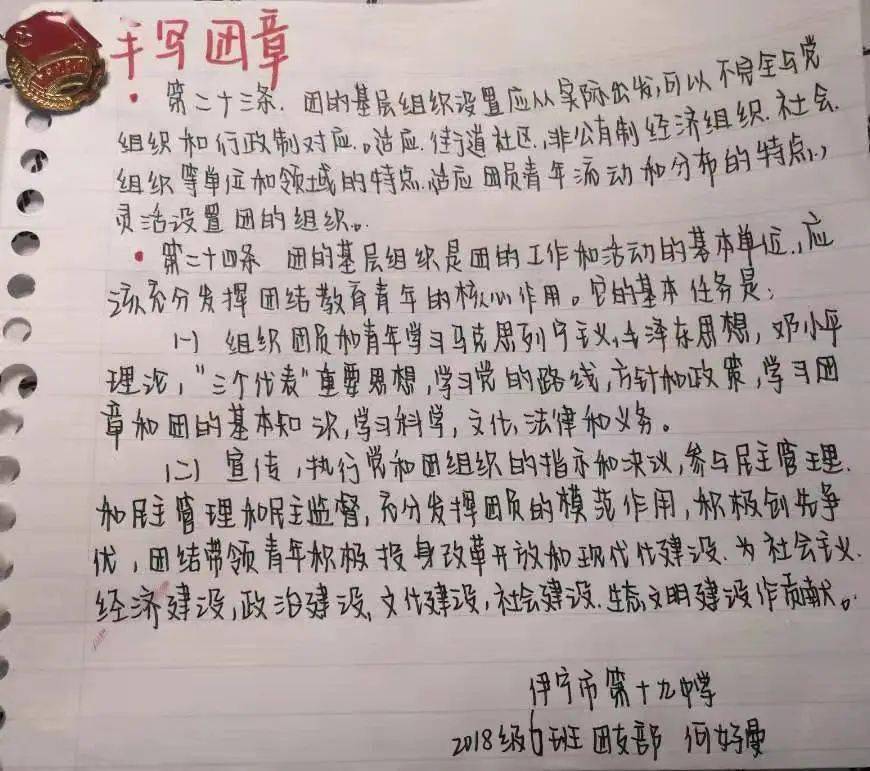 手写团章
• 第二十三条. 团的基层组织设置应从实际出发,可以不完全与党
组织和行政制对应。适应.街道社区,非公有制经济组织.社会.
组织等单位和领域的特点.适应团员青年流动和分布的特点,
灵活设置团的组织。
• 第二十四条 团的基层组织是团的工作和活动的基本单位,应
该充分发挥团结教育青年的核心作用。它的基本任务是:
(一) 组织团员和青年学习马克思列宁主义,毛泽东思想,邓小平
理论,"三个代表"重要思想,学习党的路线,方针和政策,学习团
章和团的基本知识,学习科学,文化,法律和义务。
(二) 宣传,执行党和团组织的指示和决议,参与民主管理.
和民主管理和民主监督,充分发挥团员的模范作用,积极创先争
优,团结带领青年积极投身改革开放和现代化建设.为社会主义.
经济建设,政治建设,文化建设,社会建设.生态文明建设作贡献。
伊宁市第十九中学
2018级6班 团支部 何好曼